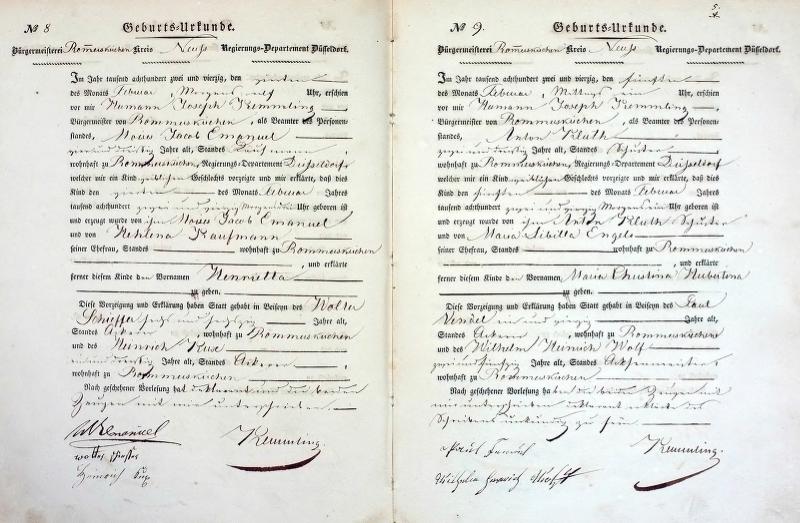 № 8
Geburts-Urkunde.
Bürgermeisterei Rommerskirchen Kreis Neuss Regierungs-Departement Düsseldorf.
Im Jahr tausend achthundert zwei und vierzig, den vierten
des Monats Februar, Morgens elf Uhr, erschien
vor mir Hermann Joseph Kemmling
Bürgermeister von Rommerskirchen, als Beamter des Personen-
standes, Moises Jacob Emanuel
und dreißig Jahre alt, Standes Kaufmann
wohnhaft zu Rommerskirchen, Regierungs-Departement Düsseldorf
welcher mir ein Kind weiblichen Geschlechts vorzeigte und mir erklärte, daß dies
Kind den vierten des Monats Februar Jahres
tausend achthundert zwei und vierzig Morgens Uhr geboren ist
und erzeugt wurde von ihm Moises Jacob Emanuel
und Kaufmann
seiner Ehefrau, Standes wohnhaft zu Rommerskirchen
, und erklärte
ferner diesem Kinde den Vornamen Henrietta
zu geben.
Diese Vorzeigung und Erklärung haben Statt gehabt in Beiseyn des Walter
Schieffer sechs und sechzig Jahre alt,
Standes Ackerer, wohnhaft zu Rommerskirchen
und des Heinrich
und dreißig Jahre alt, Standes Ackerer
wohnhaft zu Rommerskirchen
Nach geschehener Vorlesung hat Deklarant und die beiden
Zeugen mit mir unterschrieben.
Emanuel
Kemmling.
Heinrich
5.
№ 9.
Geburts-Urkunde.
Bürgermeisterei Rommerskirchen Kreis Neuss Regierungs-Departement Düsseldorf.
Im Jahr tausend achthundert zwei und vierzig, den fünften
des Monats Februar, Mittags ein Uhr, erschien
vor mir Hermann Joseph Kemmling
Bürgermeister von Rommerskirchen, als Beamter des Personen-
standes, Anton Kluth
und dreißig Jahre alt, Standes Schuster
wohnhaft zu Rommerskirchen, Regierungs-Departement Düsseldorf
welcher mir ein Kind weiblichen Geschlechts vorzeigte und mir erklärte, daß dies
Kind den fünften des Monats Februar Jahres
tausend achthundert zwei und vierzig Morgens Uhr geboren ist
und erzeugt wurde von ihm Anton Kluth Schuster
und Maria Sibilla Engels
seiner Ehefrau, Standes wohnhaft zu Rommerskirchen
, und erklärte
ferner diesem Kinde den Vornamen Maria Christina Hubertina
zu geben.
Diese Vorzeigung und Erklärung haben Statt gehabt in Beiseyn des Paul
ein und vierzig Jahre alt,
Standes Ackerer, wohnhaft zu Rommerskirchen
und des Wilhelm Heinrich Wolf
zwei und fünfzig Jahre alt, Standes
wohnhaft zu Rommerskirchen
Nach geschehener Vorlesung haben die beiden Zeugen mit
mir unterschrieben, Deklarant erklärte des
Schreibens unkundig zu sein.
Paul
Kemmling.
Wilhelm Heinrich